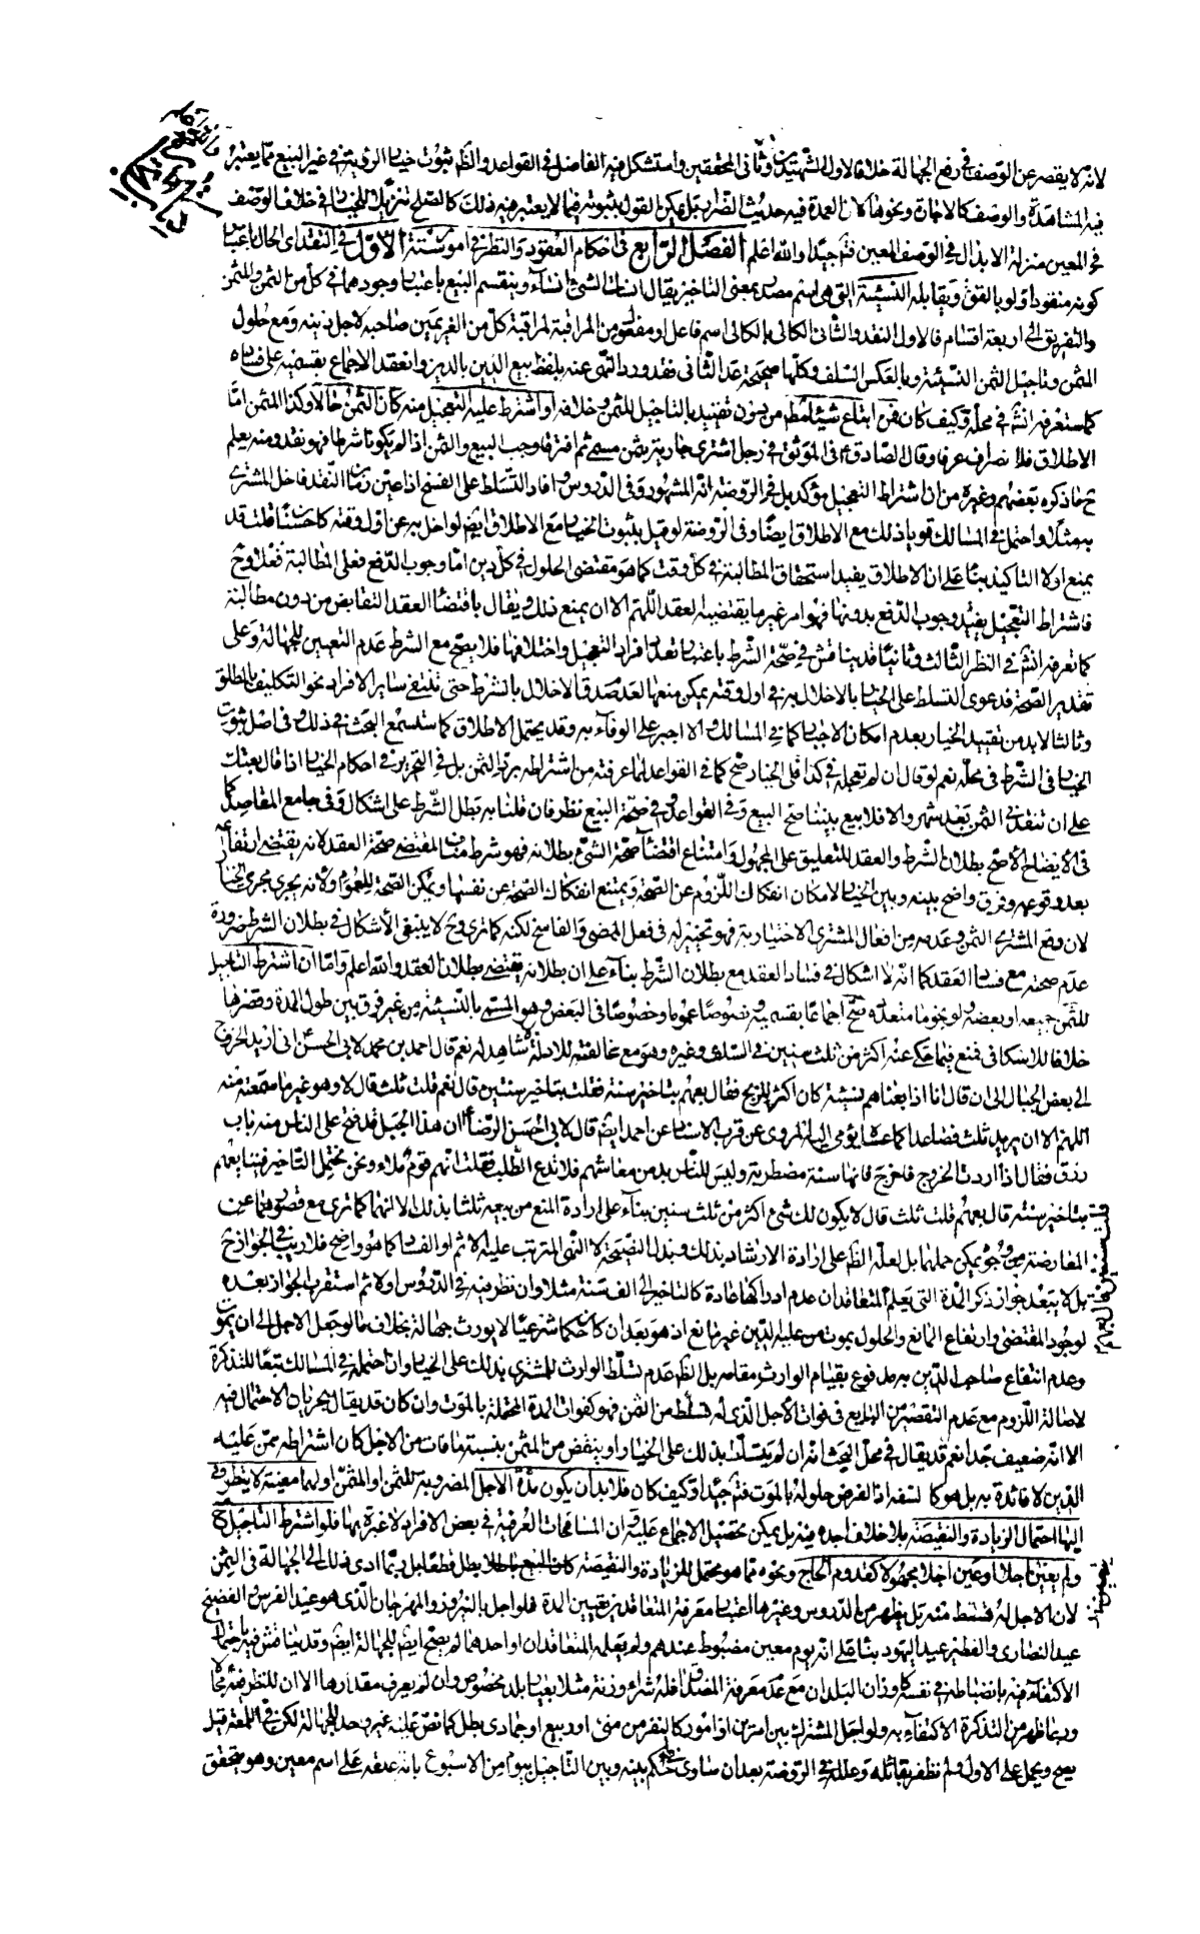 لانه لا يقصر عن الوصف في رفع الجهالة خلافا لاول الشهيدين وثاني المحققين واستشكل فيه الفاضل في القواعد والظ ثبوت خيار الروية في غير البيع مما يعتبر
فيه المشاهدة والوصف كالاجارة ونحوها لان العمدة فيه حديث الضرار بل يمكن القول بثبوته فيما لا يعتبر فيه ذلك كالصلح تنزيلا للخيار في خلاف الوصف
في المعين منزلة الابدال في الوصف المعين فتم جيدا والله اعلم الفصل الرابع في احكام العقود والنظر في امور ستة الاول في النقد اى الحال باعتبار
كونه منقودا ولو بالقوة ويقابله النسيئة التي هي اسم مصدر بمعنى التاخير يقال انسات الشئ انساء وينقسم البيع باعتبار وجودهما في كل من الثمن والمثمن
والتفريق الى اربعة اقسام فالاول النقد والثاني الكالي بالكالي اسم فاعل او مفعول من المراقبة لمراقبة كل من الغريمين صاحبه لاجل دينه ومع حلول
المثمن وتاجيل الثمن النسيئة وبالعكس السلف وكلها صحيحة عدا الثاني فقد ورد النهى عنه بلفظ بيع الدين بالدين وانعقد الاجماع بقسميه على فساده
كما ستعرفه انش في محله وكيف كان فمن ابتاع شيئا مط من دون تقييد بالتاجيل للثمن وخلافه او اشترط عليه التعجيل منه كان الثمن حالا وكذا المثمن اما
الاطلاق فلانصرافه عرفا وقال الصادق ع في الموثق في رجل اشترى جارية بثمن مسمى ثم افترقا وجب البيع والثمن اذا لم يكونا شرطا فهو نقد ومنه يعلم
ح ما ذكره بعضهم وغيره من ان اشتراط التعجيل مؤكد بل في الروضة انه المشهور وفي الدروس وافاد التسلط على الفسخ اذا عين زمان النقد فاخل المشترى
به مثلا واحتمل في المسالك قويا ذلك مع الاطلاق ايضا وفي الروضة لو قيل بثبوت الخيار مع الاطلاق ايض لو اخل به عن اول وقته كان حسنا قلت قد
يمنع اولا التاكيد بناء على ان الاطلاق يفيد استحقاق المطالبة في كل وقت كما هو مقتضى الحلول في كل دين اما وجوب الدفع فعلى المطالبة فعلا وح
فاشتراط التعجيل يفيد وجوب الدفع بدونها فهو امر غير ما يقتضيه العقد اللهم الا ان يمنع ذلك ويقال باقتضاء العقد التقابض من دون مطالبة
كما تعرفه انش في النظر الثالث وثانيا قد يناقش في صحة الشرط باعتبار تعدد افراد التعجيل واختلافها فلا يصح مع الشرط عدم التعيين للجهالة وعلى
تقدير الصحة فدعوى التسلط على الخيار بالاخلال به في اول وقته يمكن منعها لعدم صدق الاخلال بالشرط حتى تنتفي ساير الافراد نحو التكليف بالمطلق
وثالثا لا بد من تقييد الخيار بعدم امكان الاجبار كما في المسالك والا اجبر على الوفاء به وقد يحتمل الاطلاق كما ستسمع البحث في ذلك وفي اصل ثبوت
الخيار في الشرط في محله نعم لو قال ان لم تعجله في كذا فلى الخيار صح كما في القواعد لما عرفته من اشتراطه برد الثمن بل في التحرير في احكام الخيار اذا قال بعتك
على ان تنقدنى الثمن بعد شهر والا فلا بيع بيننا صح البيع وفي القواعد وفي صحة البيع نظر فان قلنا به بطل الشرط على اشكال وفي جامع المقاصد كما
في الايضاح الاصح بطلان الشرط والعقد للتعليق على المجهول وامتناع اقتضاء صحة الشئ بطلانه فهو شرط مناف لمقتضى صحة العقد لانه يقتضى ارتفاعه
بعد وقوعه وفرق واضح بينه وبين الخيار لامكان انفكاك اللزوم عن الصحة ويمتنع انفكاك الصحة عن نفسها ويمكن الصحة للعموم ولانه يجرى مجرى الخيار
لان دفع المشترى الثمن وعدمه من افعال المشترى الاختيارية فهو تخيير له في فعل الممضى والفاسخ لكنه كما ترى وح لا ينبغى الاشكال في بطلان الشرط ضرورة
عدم صحته مع فساد العقد كما انه لا اشكال في فساد العقد مع بطلان الشرط بناء على ان بطلانه يقتضى بطلان العقد والله اعلم واما ان اشترط التاجيل
للثمن جميعه او بعضه ولو نجوما متعددة صح اجماعا بقسميه ونصوصا عموما وخصوصا في البعض وهو المسمى بالنسيئة من غير فرق بين طول المدة وقصرها
خلافا للاسكافي فمنع فيما حكى عنه اكثر من ثلث سنين في السلف وغيره وهو مع مخالفته للادلة لا شاهد له نعم قال احمد بن محمد لابى الحسن ع انى اريد الخروج
الى بعض الجبال الى ان قال انا اذا بعناهم بنسيئة كان اكثر للربح فقال بعهم بتاخير سنة فقلت بتاخير سنتين قال نعم قلت ثلث قال لا وهو غير ما سمعته منه
اللهم الا ان يريد ثلث فصاعدا كما عساه يؤمى اليه المروى عن قرب الاسناد عن احمد ايض قال لابى الحسن الرضا ع ان هذا الجبل قد فتح على الناس منه باب
رزق فقال اذا اردت الخروج فاخرج فانها سنة مضطربة وليس للناس بد من معاشهم فلا تدع الطلب فقلت انهم قوم ملاء ونحن نحتمل التاخير فنبايعهم
بتاخير سنة قال بعهم قلت ثلث قال لا يكون لك شئ اكثر من ثلث سنين بناء على ارادة المنع من بيعه ثلثا بذلك الا انهما كما ترى مع قصورهما عن
المعارضة من وجوه يمكن حملهما بل لعله الظ على ارادة الارشاد بذلك وبذل النصيحة لا النهى المترتب عليه الاثم او الفساد كما هو واضح فلا ريب في الجواز ح
بل لا يبعد جواز ذكر المدة التي يعلم المتعاقدان عدم ادراكها عادة كالتاخير الى الف سنة مثلا وان نظر فيه في الدروس اولا ثم استقرب الجواز بعده
لوجود المقتضى وارتفاع المانع والحلول بموت من عليه الدين غير مانع اذ هو بعد ان كان حكما شرعيا لا يورث جهالة بخلاف ما لو جعل الاجل الى ان يموت
وعدم انتفاع صاحب الدين به مدفوع بقيام الوارث مقامه بل الظ عدم تسلط الوارث للمشترى بذلك على الخيار وان احتمله في المسالك تبعا للتذكرة
لاصالة اللزوم مع عدم التقصير من البايع في فوات الاجل الذى له قسط من الثمن فهو كفوات المدة المحتملة بالموت وان كان قد يقال بجريان الاحتمال فيه
الا انه ضعيف جدا نعم قد يقال في محل البحث انه ان لم يتسلط بذلك على الخيار او ينقص من المثمن بنسبة ما فات من الاجل كان اشتراطه ممن عليه
الدين لا فائدة به بل هو كالسفه اذ الفرض حلوله بالموت فتم جيدا وكيف كان فلا بد ان يكون مدة الاجل المضروبة للثمن او المثمن او لهما معينة لا يتطرق
اليها احتمال الزيادة والنقيصة بلا خلاف اجده فيه بل يمكن تحصيل الاجماع عليه وان المسامحات العرفية في بعض الافراد لا عبرة بها فلو اشترط التاجيل
ولم يعين اجلا او عين اجلا مجهولا كقدوم الحاج ونحوه مما هو محتمل للزيادة والنقيصة كان البيع باطلا بطل قطعا بل ربما ادى ذلك الى الجهالة في الثمن
لان الاجل له قسط منه بل يظهر من الدروس وغيرها اعتبار معرفة المتعاقدين بتعيين المدة فلو اجل بالنيروز والمهرجان الذى هو عيد الفرس والفصح
عيد النصارى والفطير عيد اليهود بناء على انه يوم معين مضبوط عندهم ولم يعلمه المتعاقدان او احدهما لم يصح ايض للجهالة ايض وقد يناقش فيه باحتمال
الاكتفاء فيه بانضباطه في نفسه كاوزان البلدان مع عدم معرفة المصداق فله شراء وزنة مثلا بعيار بلد مخصوص وان لم يعرف مقدارها الا ان للنظر فيه مجالا
وربما ظهر من التذكرة الاكتفاء به ولو اجل المشترك بين امرين او امور كالنفر من منى او ربيع او جمادى بطل كما نص عليه غير واحد للجهالة لكن في اللمعة قيل
يصح ويحمل على الاول ولم نظفر بقائله وعلله في الروضة بعد ان ساوى في الحكم بينه وبين التاجيل بيوم من الاسبوع بانه علقه على اسم معين وهو يتحقق